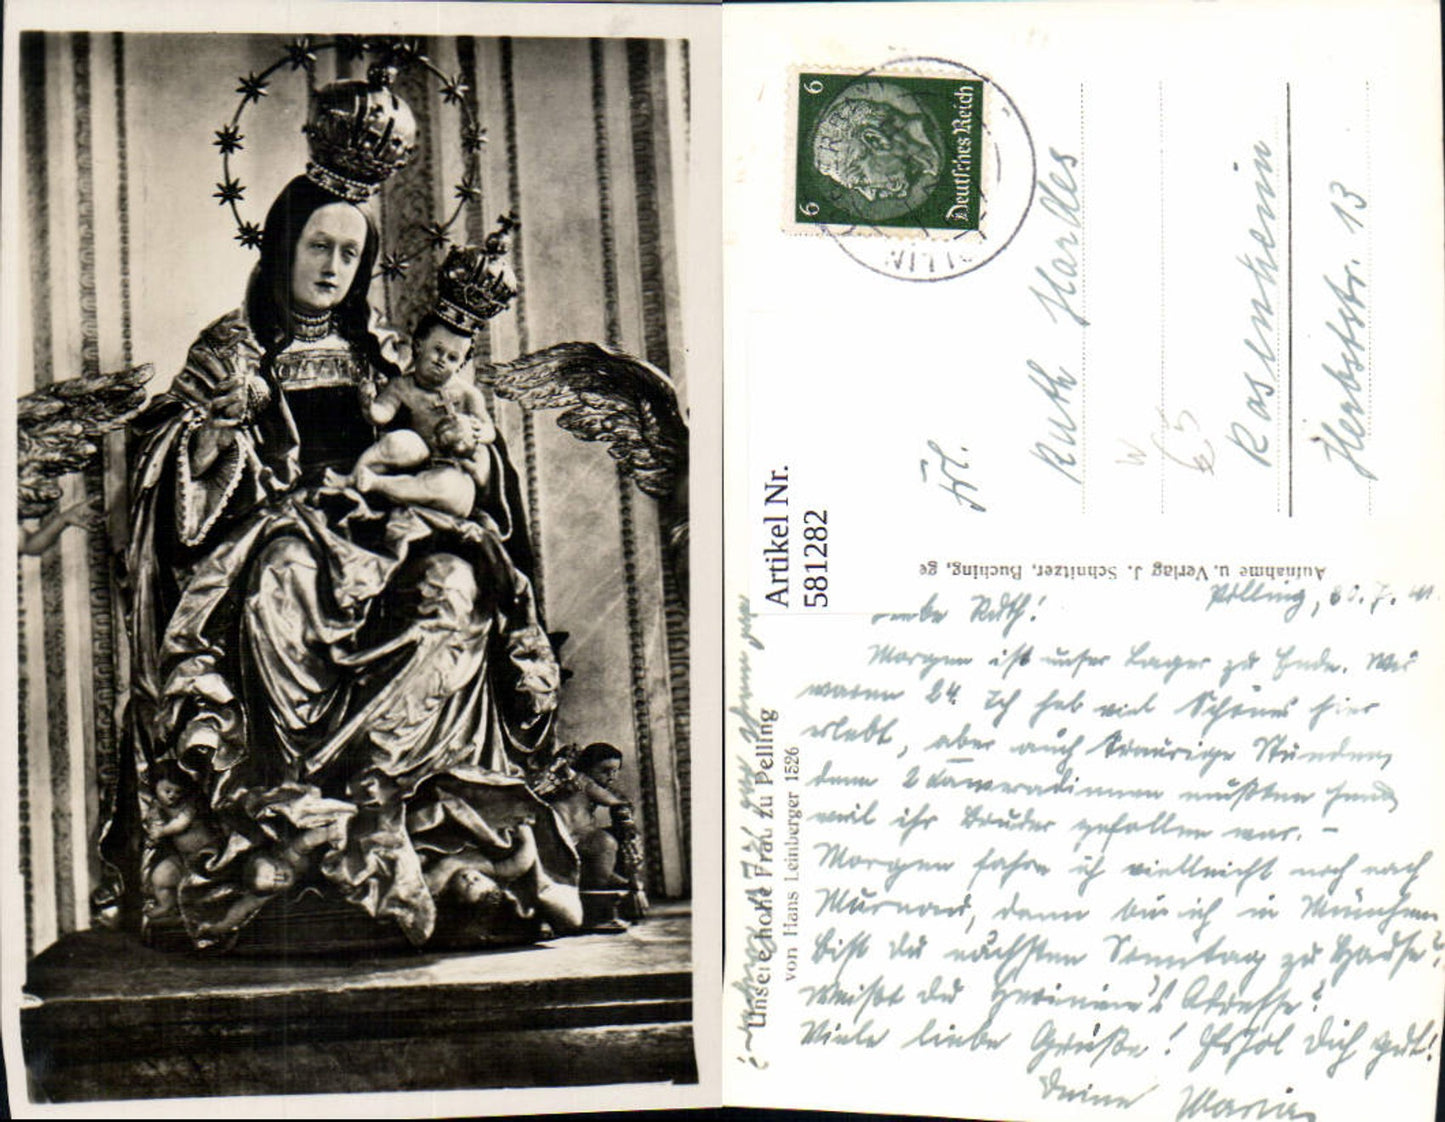 6 6
Deutsches Reich
Frl.
Ruth Hardes
W 65
Rosenheim
Herbststr. 13
Artikel Nr.
581282
Aufnahme u. Verlag J. Schnitzer, Buching, ge
Polling, 30. 7. 41.
Liebe Ruth!
Morgen ist unser Lager zu Ende. Wir
waren 24. Ich hab viel Schönes hier
erlebt, aber auch traurige Stunden,
denn 2 Kameradinnen mußten heim,
weil ihr Bruder gefallen war. –
Morgen fahre ich vielleicht noch nach
Murnau, dann bin ich in München
Bist du nächsten Sonntag zu Hause?
Weißt du 's Adresse?
Viele liebe Grüße! Erhol Dich gut!
Deine Maria
Unsere hohe Frau zu Pelling
von Hans Leinberger 1526